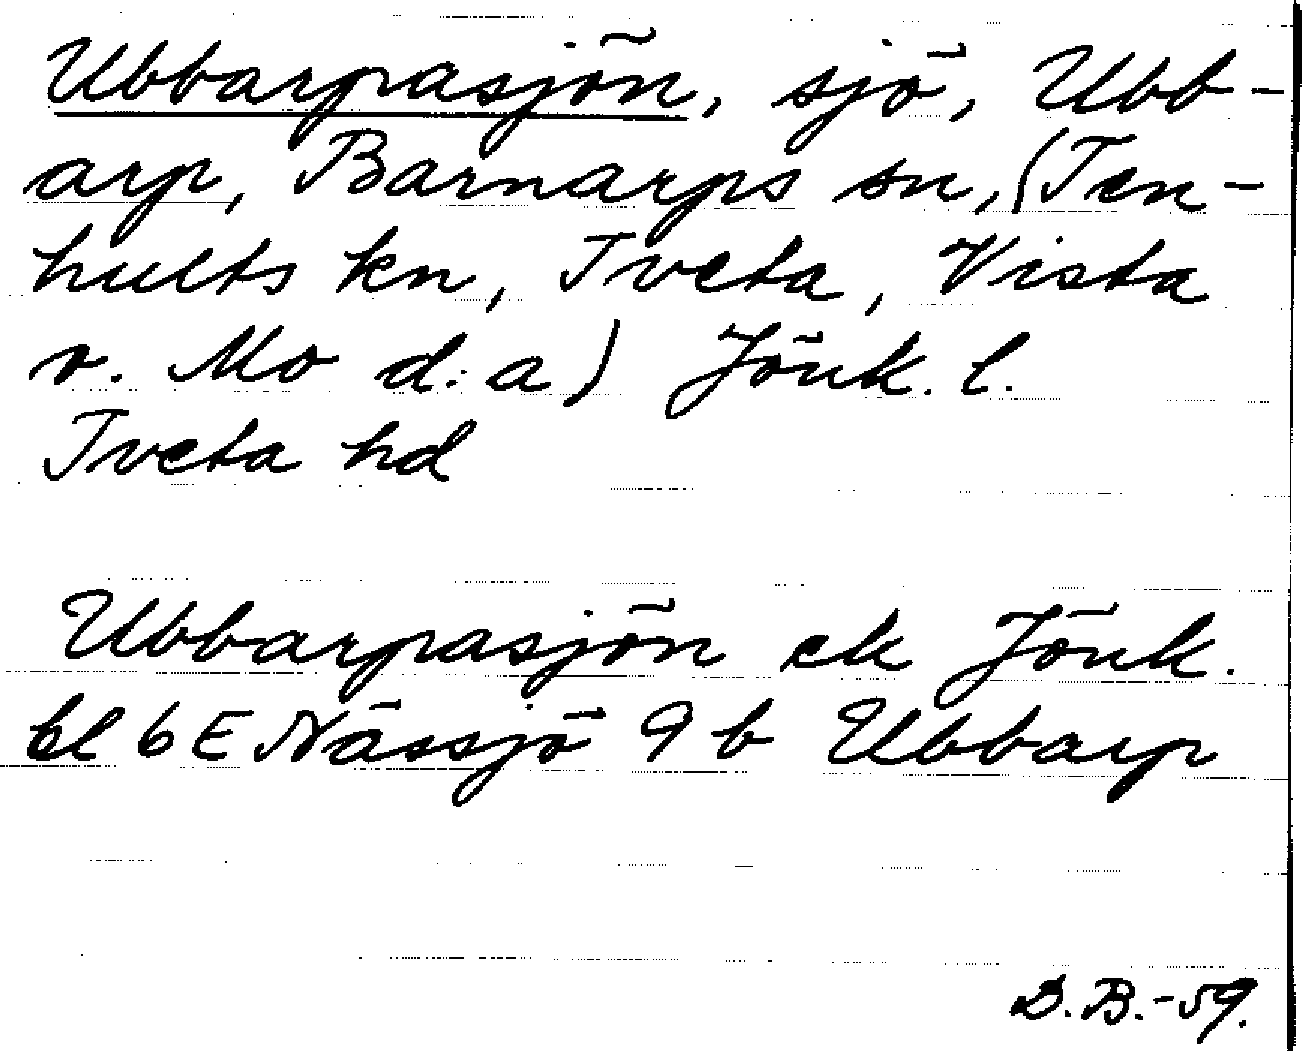 Ubbarpasjön, sjö, Ubb-
arp, Barnarps sn, (Ten-
hults kn, Tveta, Vista
o. Mo d:a) Jönk. l.
Tveta hd
Ubbarpasjön ek Jönk.
bl 6 E Nässjö 9 b Ubbarp
D.B.-59.